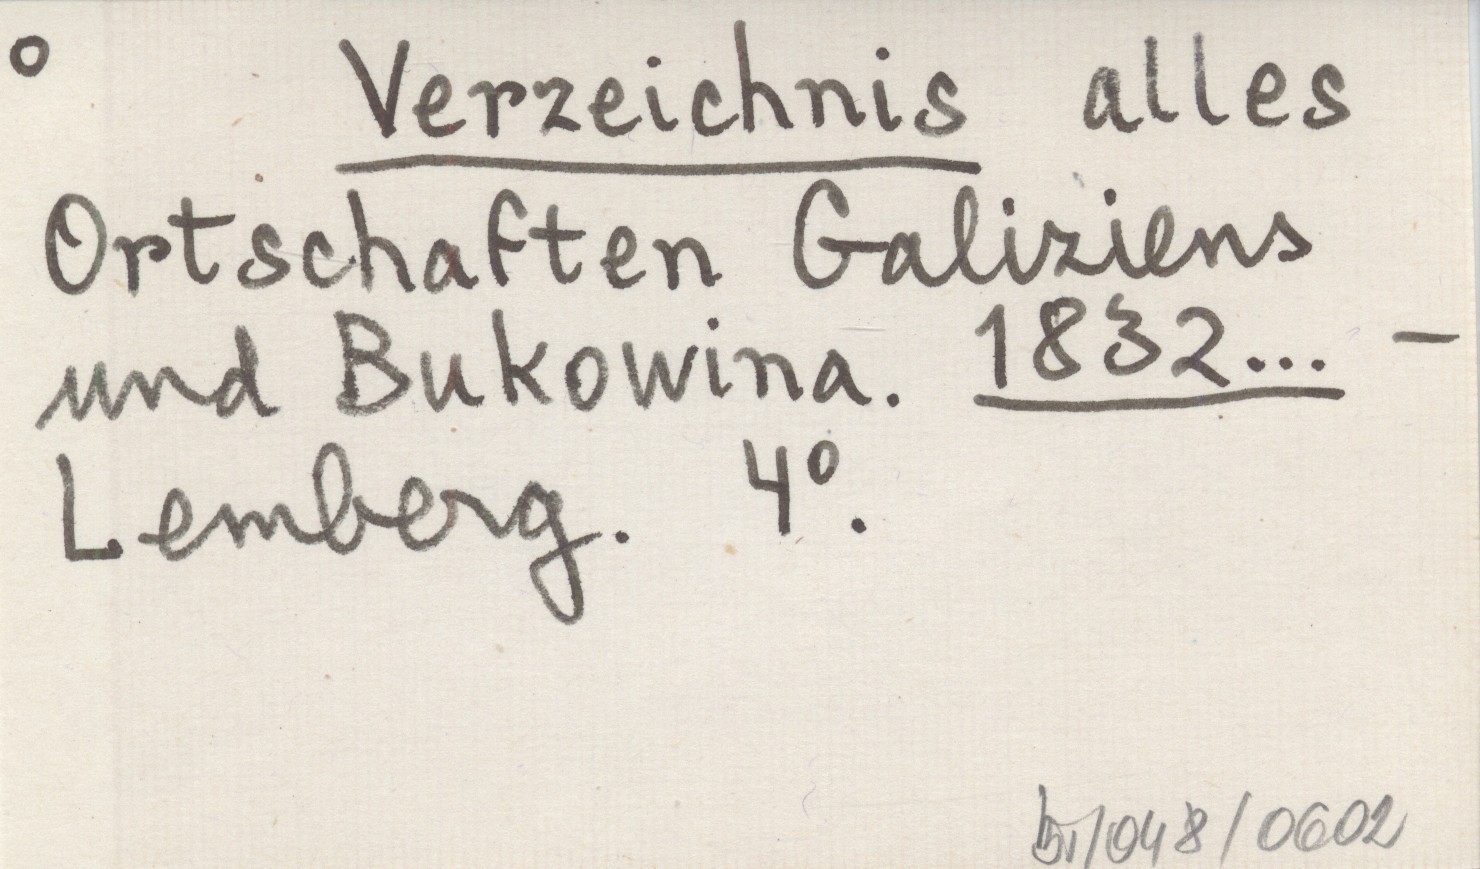 o Verzeichnis alles
Ortschaften Galiziens
und Bukowina. 1832... –
Lemberg. 4º.
/048/0602